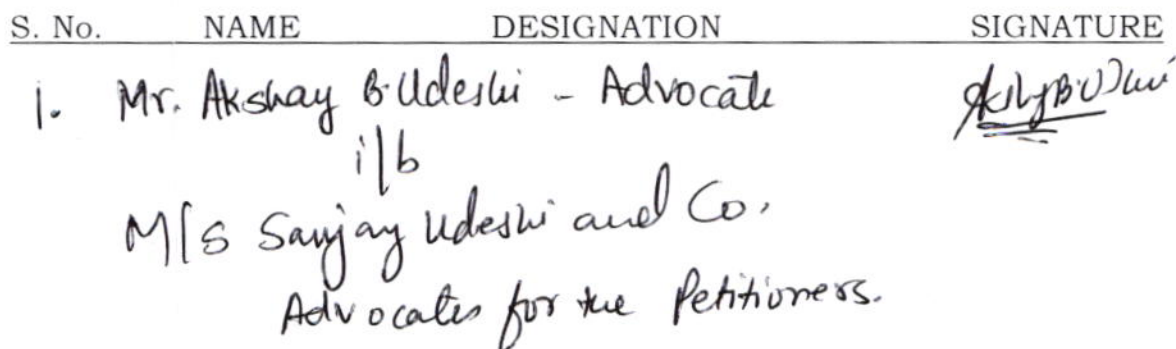 S. No. NAME DESIGNATION SIGNATURE
1. Mr. Akshay B. Udeshi - Advocate
i/b
M/s Sanjay Udeshi and Co.
Advocates for the Petitioners.